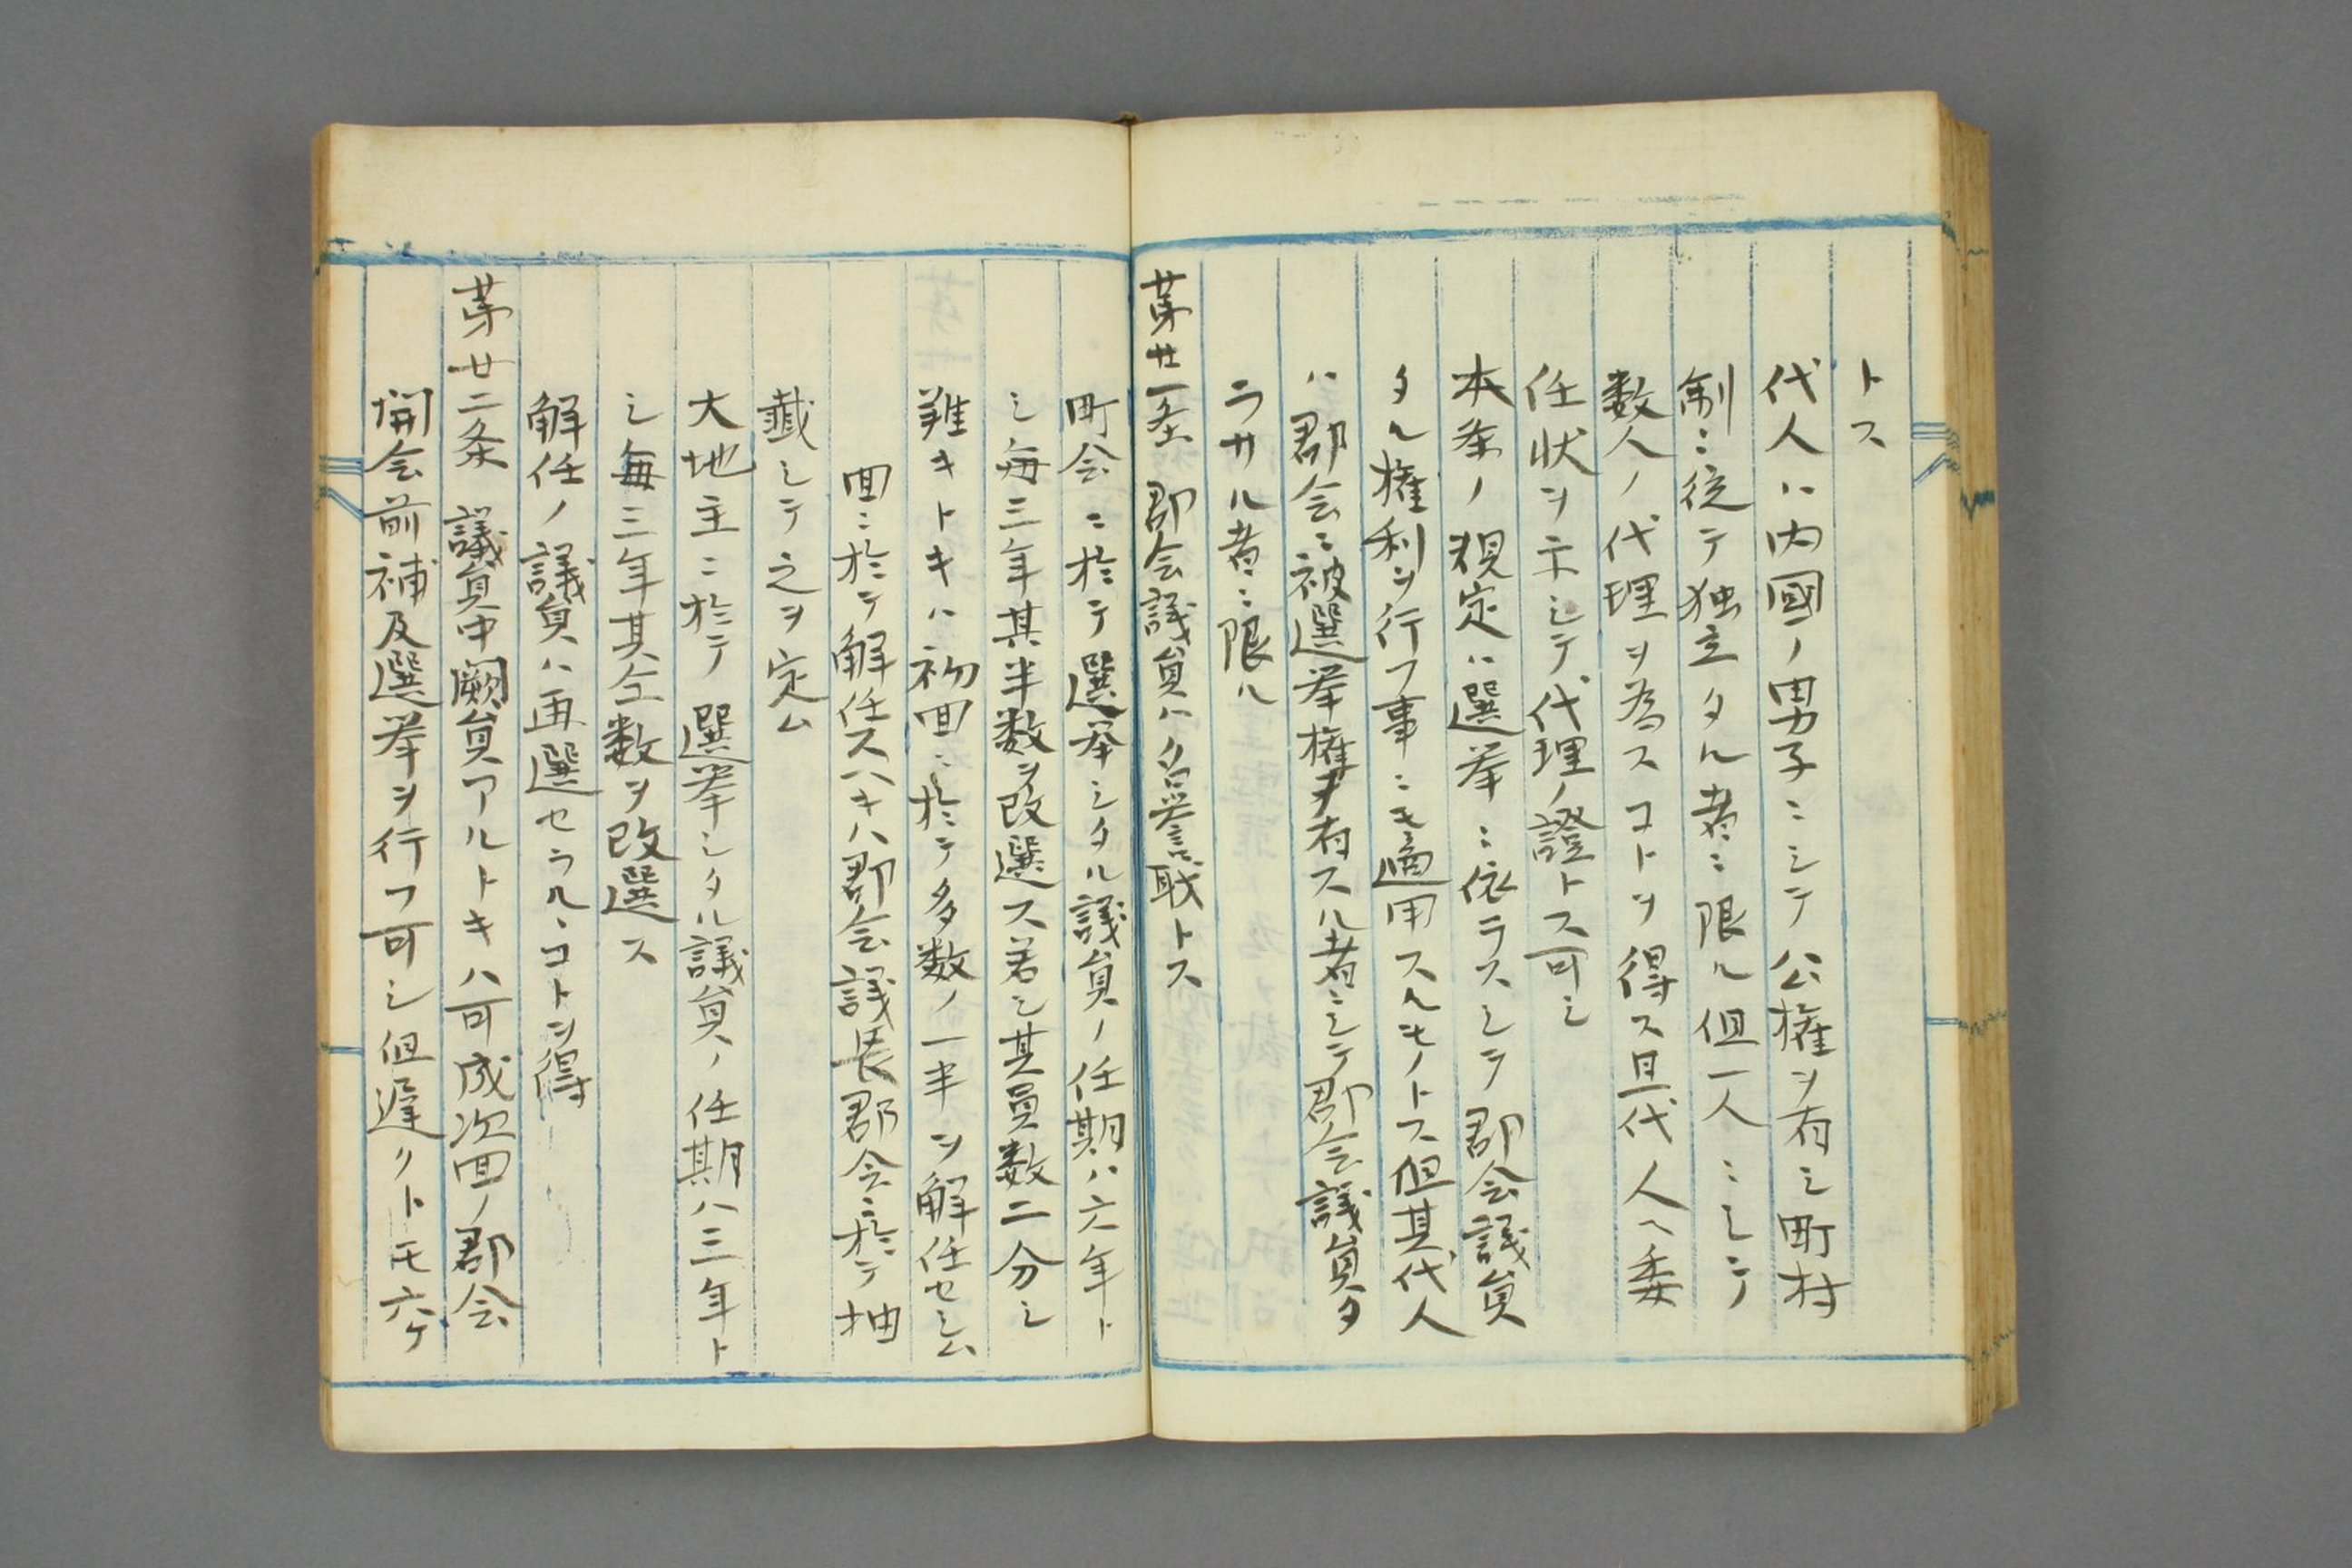 トス
代人ハ内國ノ男子ニシテ公権ヲ有シ町村
制ニ従テ独立タル者ニ限ル但一人ニシテ
数人ノ代理ヲ為スコトヲ得ス且代人ヘ委
任状ヲ示シテ代理ノ證トス可シ
本条ノ規定ハ選挙ニ依ラスシテ郡会議員
タル権利ヲ行フ事ニモ適用スルモノトス但其代人
ハ郡会ニ被選挙権ヲ有スル者ニシテ郡会議員タ
ラサル者ニ限ル
第廿一条 郡会議員ハ名誉職トス
町会ニ於テ選挙シタル議員ノ任期ハ六年ト
シ毎三年其半数ヲ改選ス若シ其員数二分シ
難キトキハ初回ニ於テ多数ノ一半ヲ解任セシム
回ニ於テ解任スヘキハ郡会議長郡会ニ於テ抽
籤シテ之ヲ定ム
大地主ニ於テ選挙シタル議員ノ任期ハ三年ト
シ毎三年其全数ヲ改選ス
解任ノ議員ハ再選セラルヽコトヲ得
第廿二条 議員中闕員アルトキハ可成次回ノ郡会
開会前補及選挙ヲ行フ可シ但遅クトモ六ケ